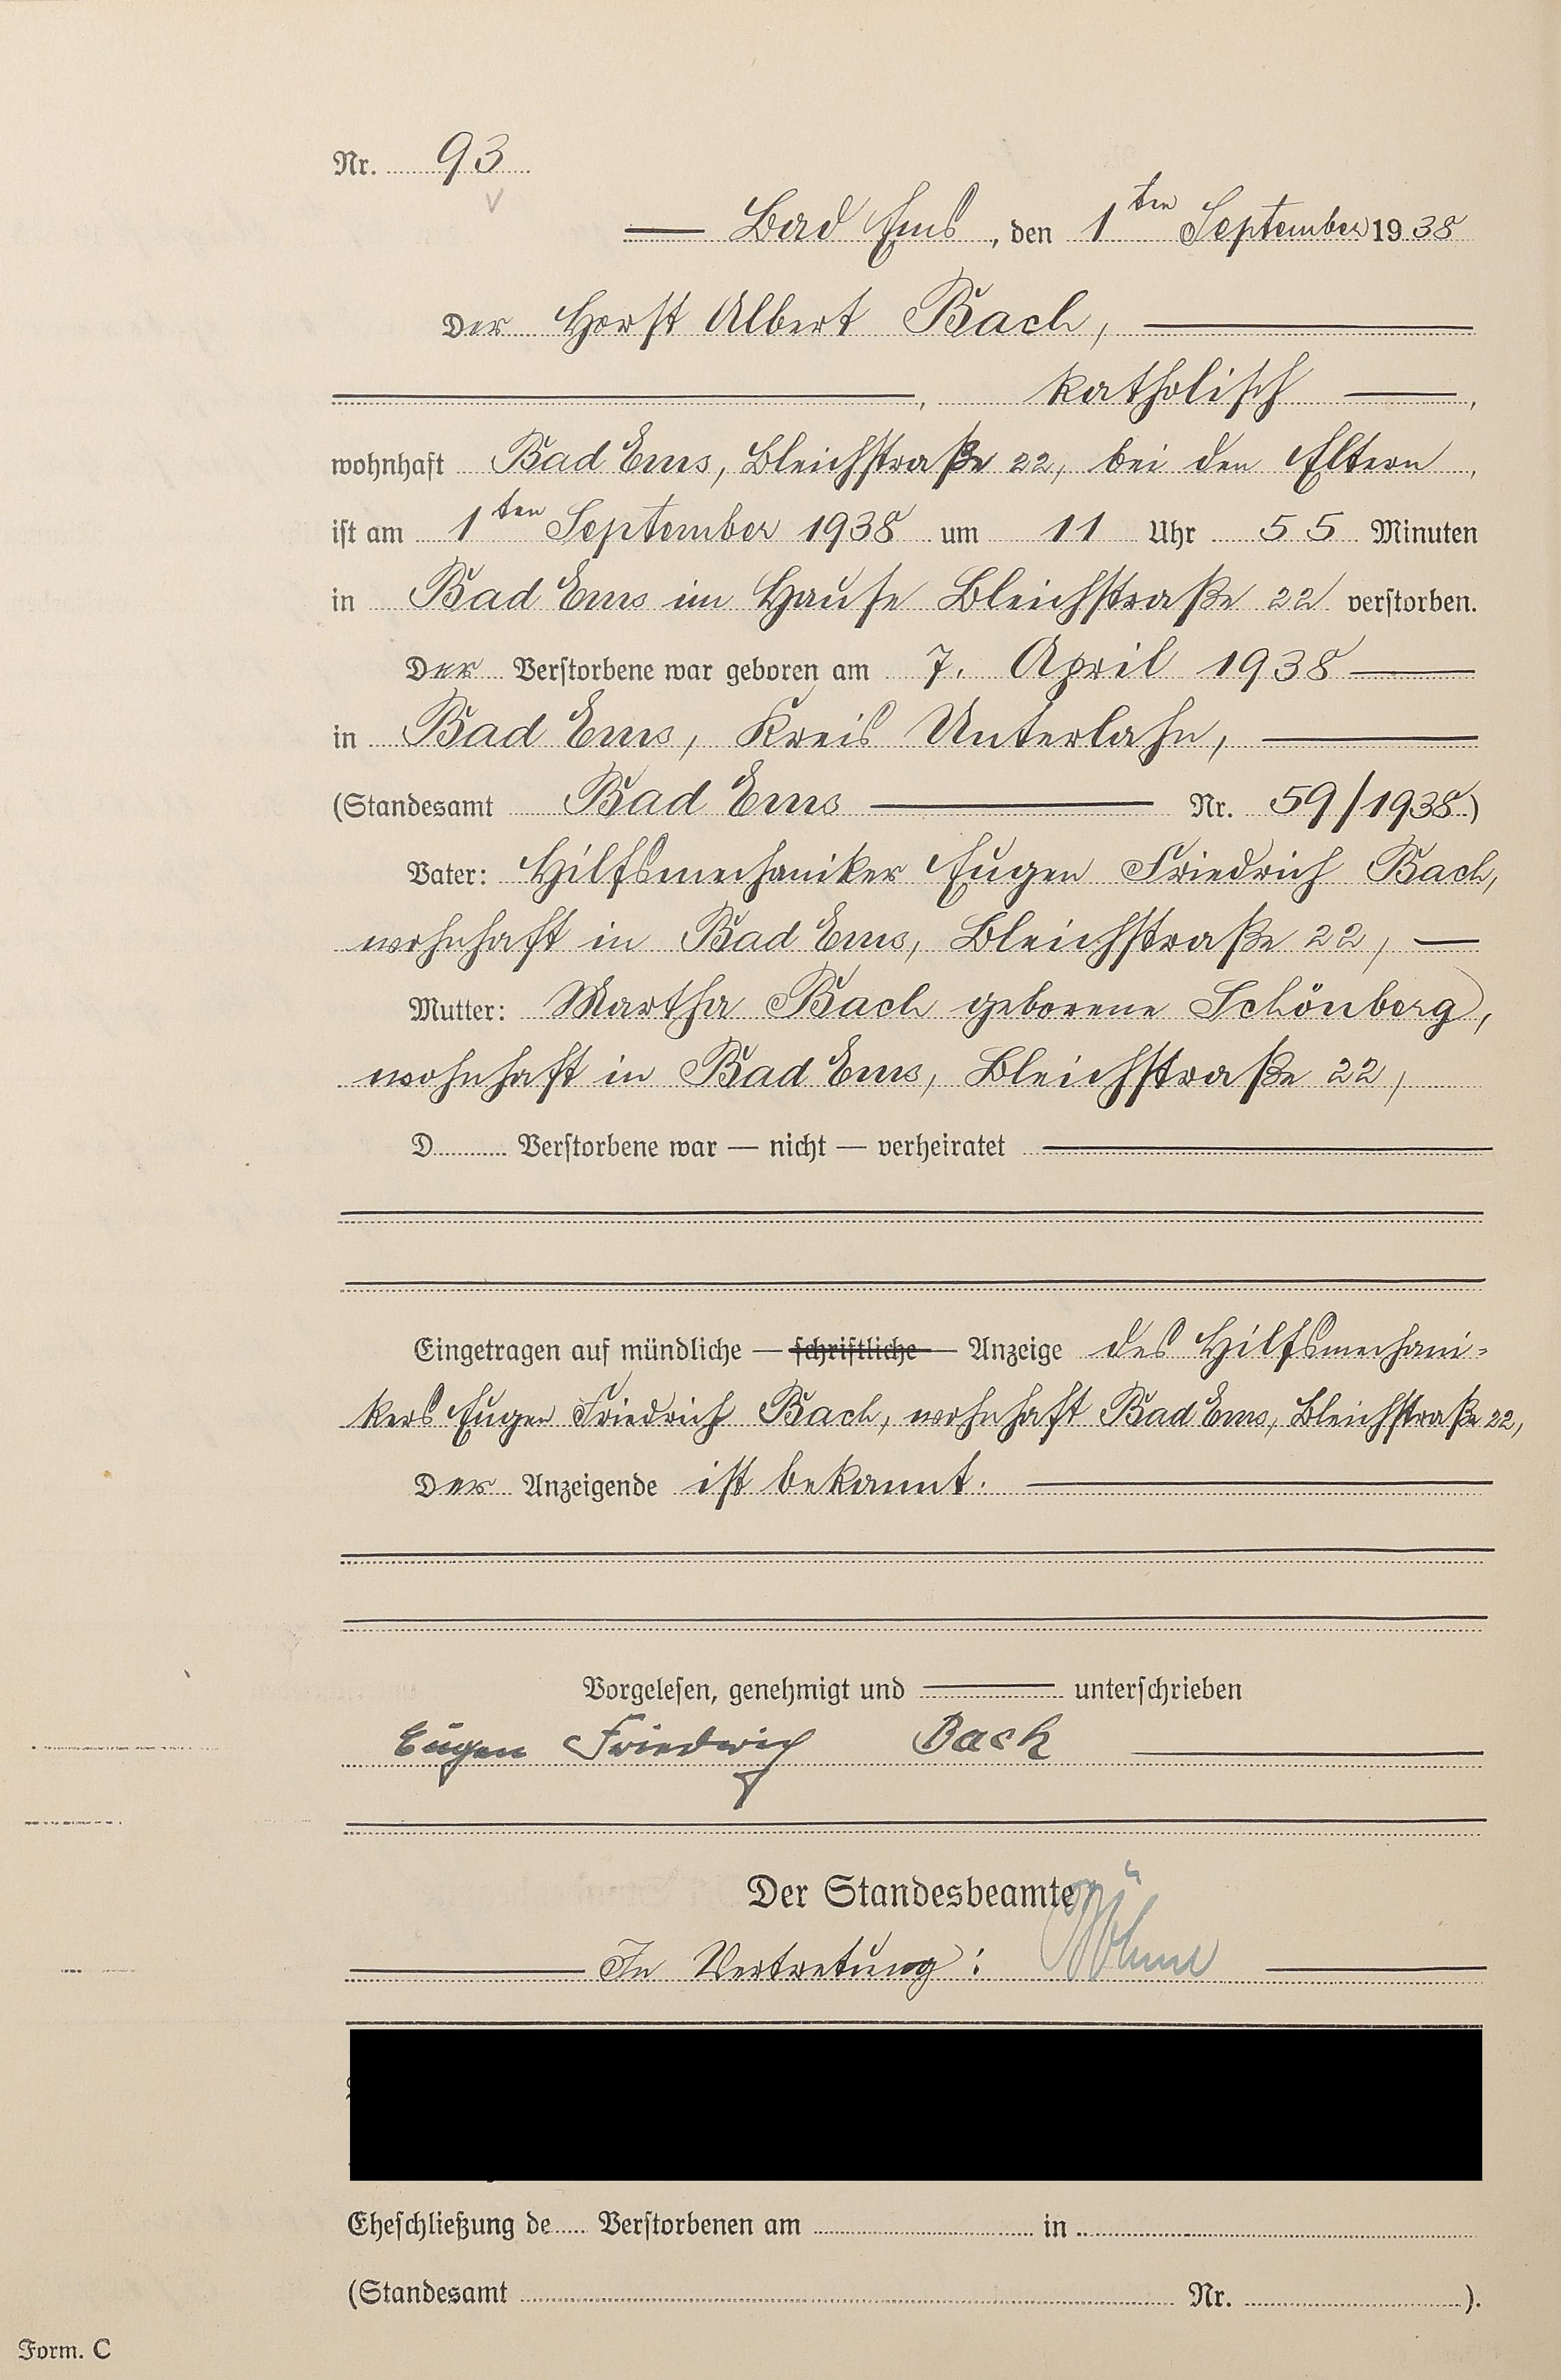 Nr. 93
Bad Ems, den 1ten September 1938
Der Horst Albert Bach,
, katholisch ,
wohnhaft Bad Ems, Bleichstraße 22, bei den Eltern,
ist am 1ten September 1938 um 11 Uhr 55 Minuten
in Bad Ems im Hause Bleichstraße 22 verstorben.
Der Verstorbene war geboren am 7. April 1938
in Bad Ems, Kreis Unterlahn,
(Standesamt Bad Ems Nr. 59/1938)
Vater: Hilfsmechaniker Eugen Friedrich Bach,
wohnhaft in Bad Ems, Bleichstraße 22,
Mutter: Martha Bach geborene Schönberg,
wohnhaft in Bad Ems, Bleichstraße 22,
D Verstorbene war — nicht — verheiratet
Eingetragen auf mündliche — schriftliche — Anzeige des Hilfsmechani-
kers Eugen Friedrich Bach, wohnhaft Bad Ems, Bleichstraße 22,
Der Anzeigende ist bekannt.
Vorgelesen, genehmigt und unterschrieben
Eugen Friedrich Bach
Der Standesbeamte
In Vertretung:
Eheschließung de Verstorbenen am in
(Standesamt Nr. ).
Form. C